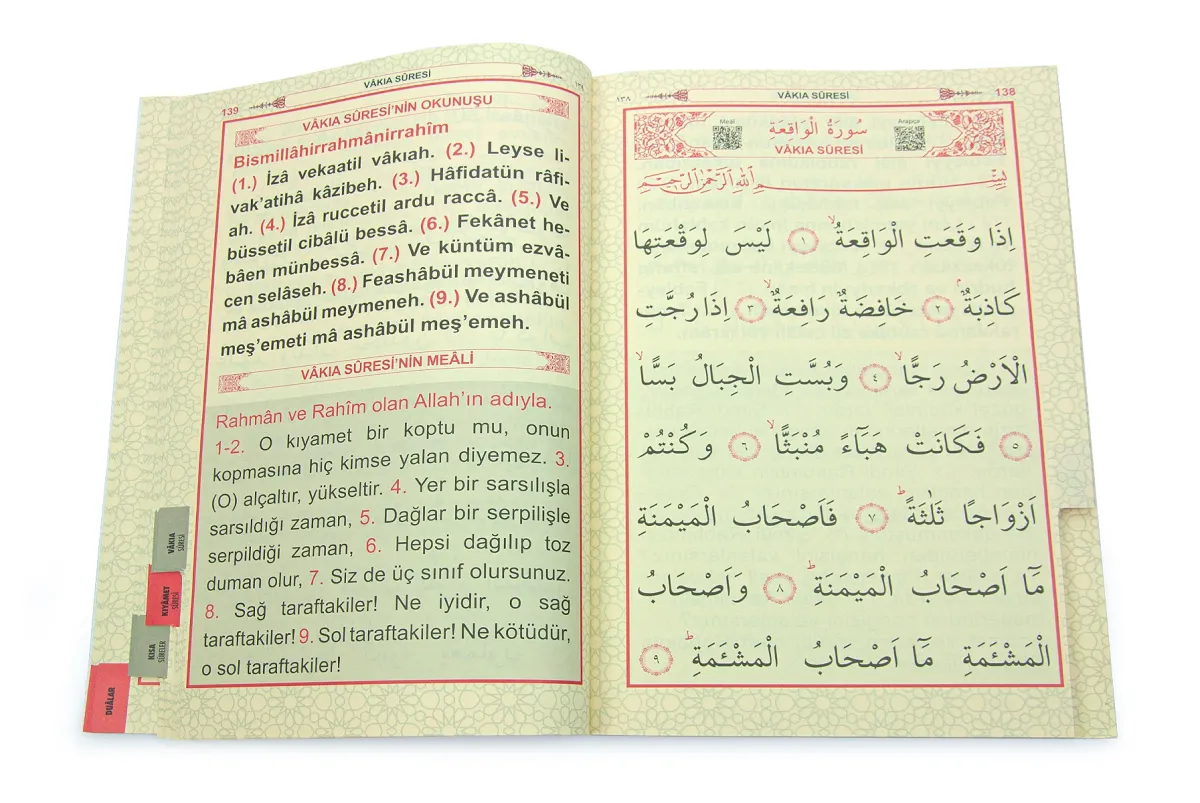 VÂKIA SÛRESİ
138
١٣٨
Meâl
Arapça
سُورَةُ الْوَاقِعَةِ
VÂKIA SÛRESİ
بِسْمِ اللّٰهِ الرَّحْمٰنِ الرَّحِيمِ
اِذَا وَقَعَتِ الْوَاقِعَةُۙ ١ لَيْسَ لِوَقْعَتِهَا
كَاذِبَةٌۢ ٢ خَافِضَةٌ رَافِعَةٌۙ ٣ اِذَا رُجَّتِ
الْاَرْضُ رَجًّاۙ ٤ وَبُسَّتِ الْجِبَالُ بَسًّاۙ
٥ فَكَانَتْ هَبَٓاءً مُنْبَثًّاۙ ٦ وَكُنْتُمْ
اَزْوَاجًا ثَلٰثَةًۜ ٧ فَاَصْحَابُ الْمَيْمَنَةِ
مَٓا اَصْحَابُ الْمَيْمَنَةِۜ ٨ وَاَصْحَابُ
الْمَشْـَٔمَةِ مَٓا اَصْحَابُ الْمَشْـَٔمَةِۜ ٩
139
VÂKIA SÛRESİ
VÂKIA SÛRESİ’NİN OKUNUŞU
Bismillâhirrahmânirrahîm
(1.) İzâ vekaatil vâkıah. (2.) Leyse li-
vak’atihâ kâzibeh. (3.) Hâfidatün râfi-
ah. (4.) İzâ ruccetil ardu raccâ. (5.) Ve
büssetil cibâlü bessâ. (6.) Fekânet he-
bâen münbessâ. (7.) Ve küntüm ezvâ-
cen selâseh. (8.) Feashâbül meymeneti
mâ ashâbül meymeneh. (9.) Ve ashâbül
meş’emeti mâ ashâbül meş’emeh.
VÂKIA SÛRESİ’NİN MEÂLİ
Rahmân ve Rahîm olan Allah’ın adıyla.
1-2. O kıyamet bir koptu mu, onun
kopmasına hiç kimse yalan diyemez. 3.
(O) alçaltır, yükseltir. 4. Yer bir sarsılışla
sarsıldığı zaman, 5. Dağlar bir serpilişle
serpildiği zaman, 6. Hepsi dağılıp toz
duman olur, 7. Siz de üç sınıf olursunuz.
8. Sağ taraftakiler! Ne iyidir, o sağ
taraftakiler! 9. Sol taraftakiler! Ne kötüdür,
o sol taraftakiler!
VÂKIA
SÛRESİ
KIYÂMET
SÛRESİ
KISA
SÛRELER
DUÂLAR